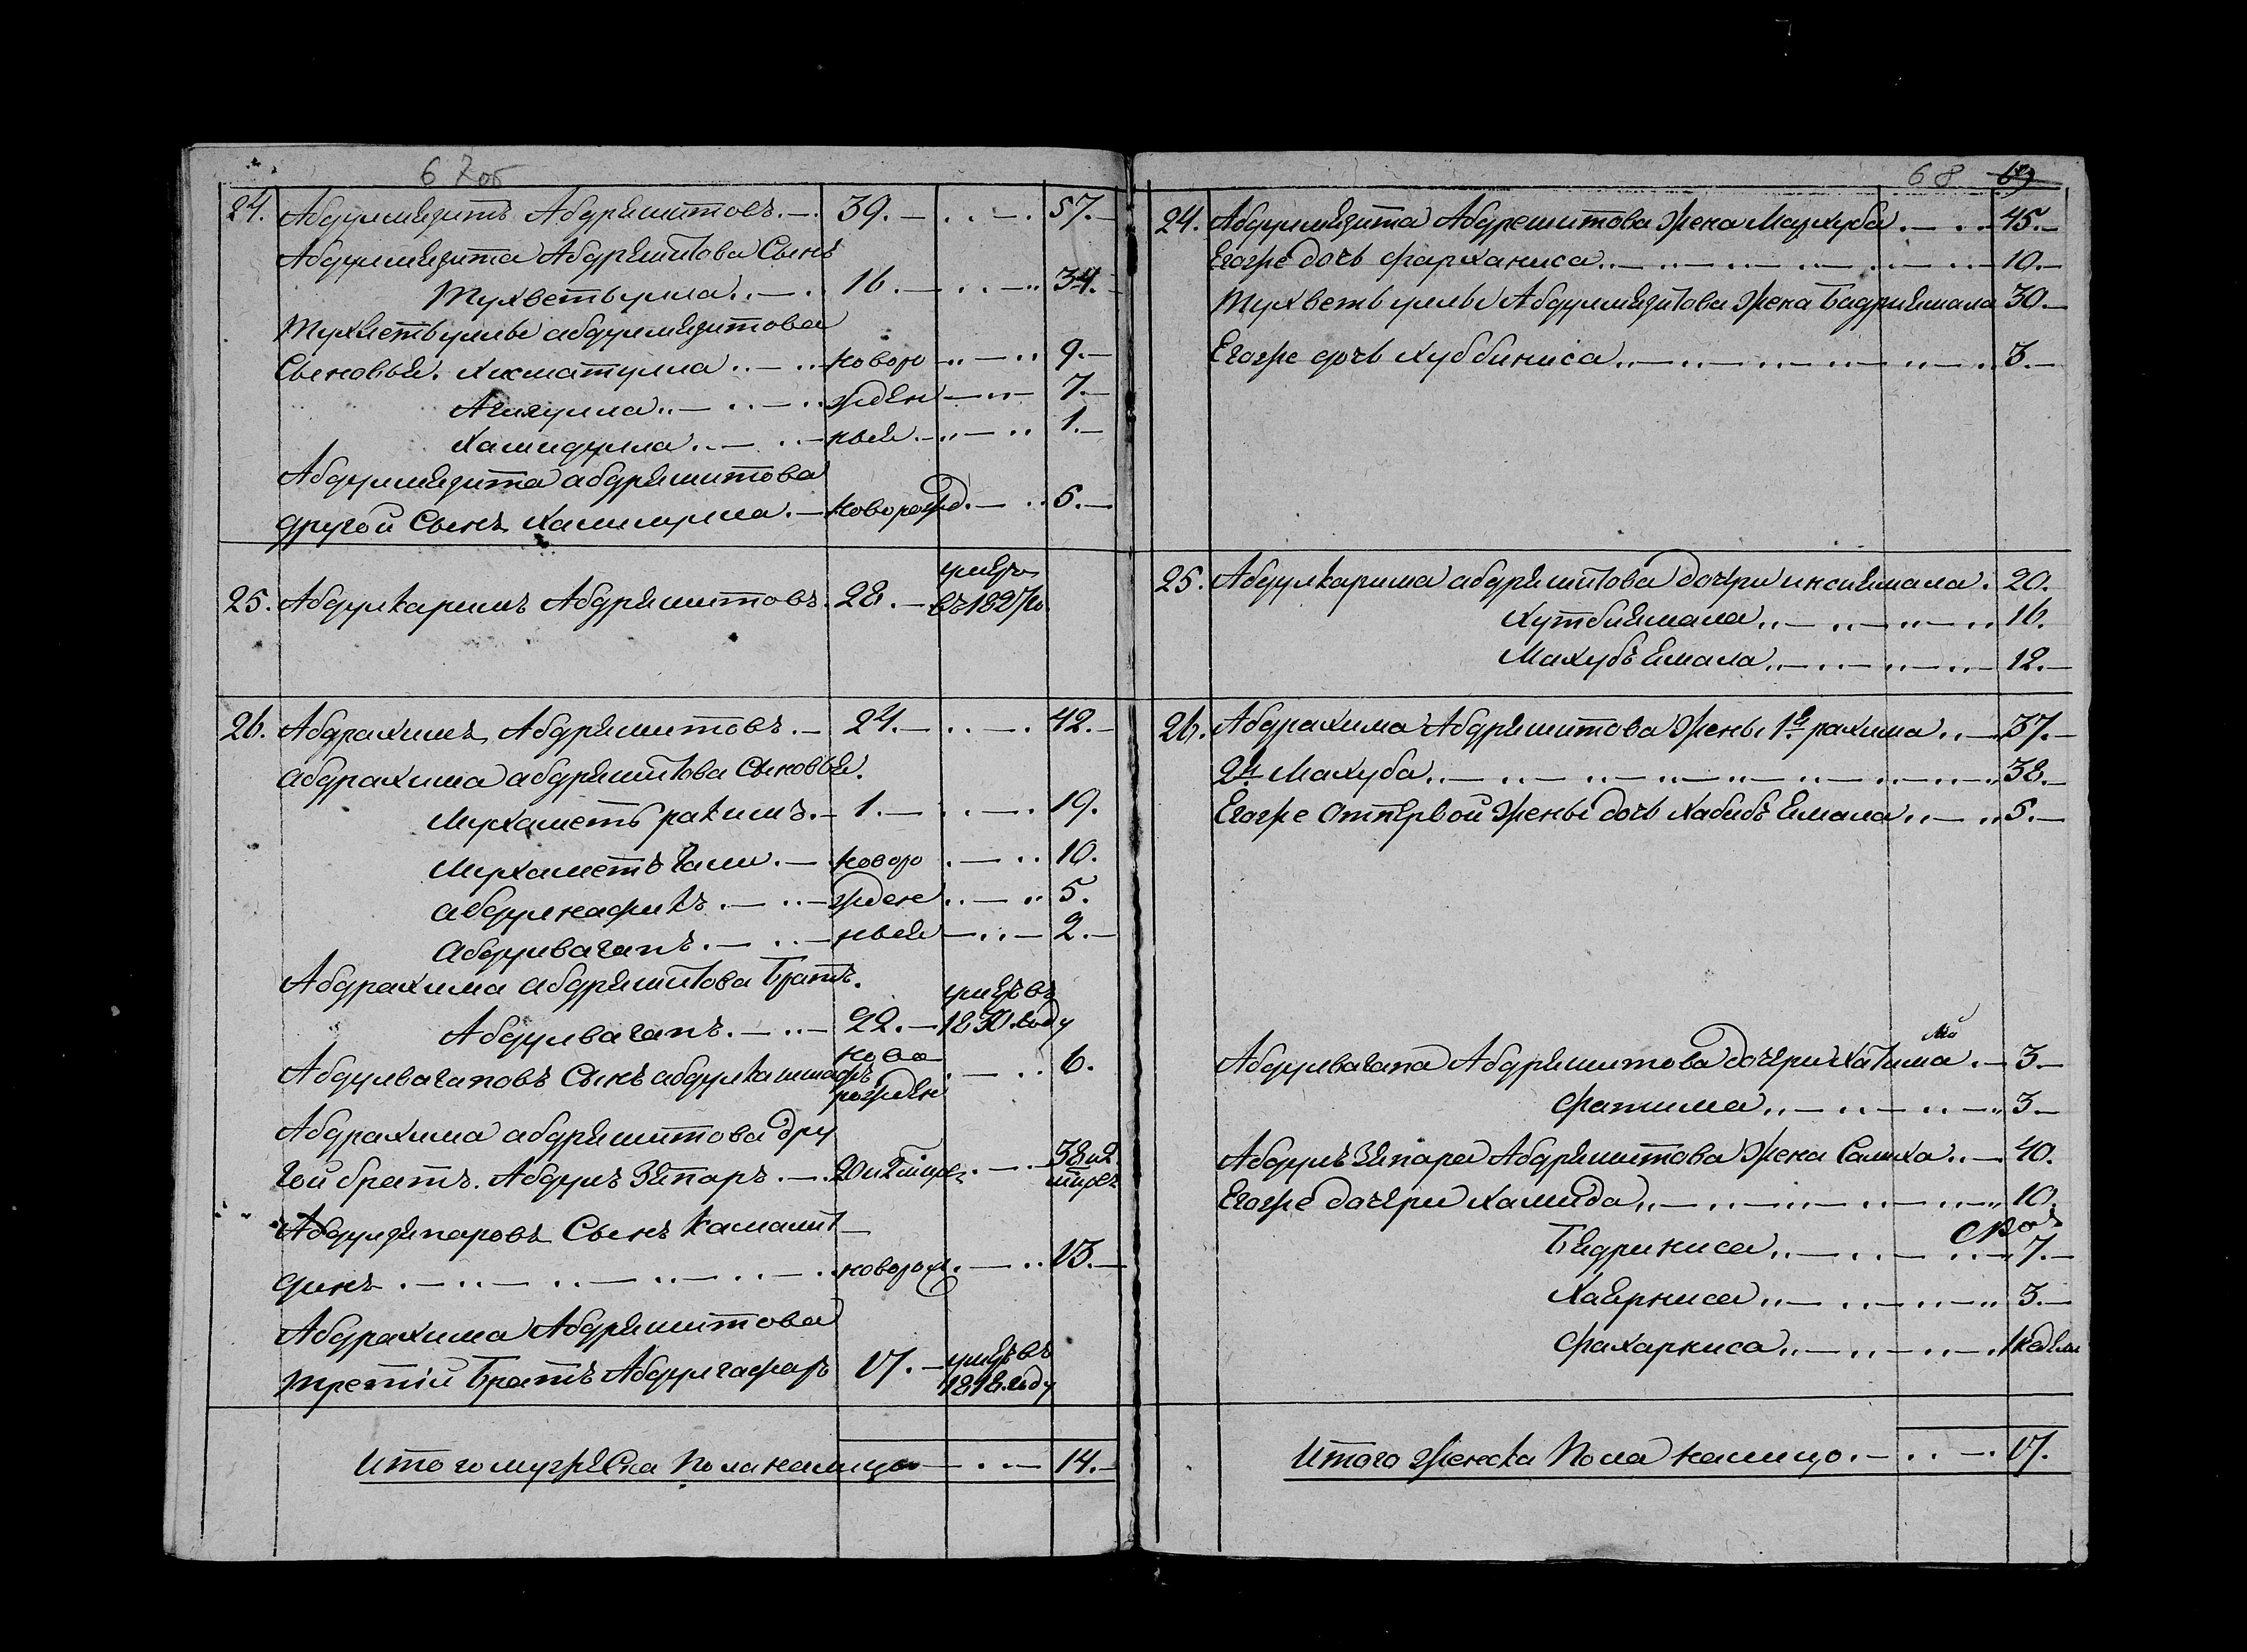 67об
24. Абдулмязитъ Абдряшитовъ. 39. 57.
Абдулмязита Абдряшитова Сынъ
Мухветьулла 16. 34.
Мухметьуллы абдулмязитова
Сыновья. Хисматулла новоро 9.
Агиулла жден 7.
Хамидулла ныя 1.
Абдулмязита абдряшитова
другой Сынъ Халиулла новорожд. 5.
25. Абдулкаримъ Абдряшитовъ. 28. умре въ 1827го
26. Абдрахимъ Абдряшитовъ. 24. 42.
Абдрахима абдряшитова Сыновья.
Мухаметьрахимъ. 1. 19.
Мухаметъгали новоро 10.
абдулнафикъ жден 5.
Абдулвагапъ ныя 2.
Абдрахима абдряшитова Братъ.
Абдулвагапъ. 22. умръ въ 1830. году
Абдулвагаповъ Сынъ абдулкашшафъ ново рожден 6.
Абдрахима абдряшитова дру
гой братъ. Абдулъ Зяпаръ. 20 и 2
Абдулзяпаровъ Сынъ Камалит
динъ новорож. 13.
Абдрахима Абдряшитова
третiй Братъ Абдулгафаръ 17. умръ въ 1818. году
Итого мужеска пола налицо 14.
68 69
24. Абдулмязита Абдрешитова Жена Махуба 45.
Егоже дочь фарханиса 10.
Мухветь уллы Абдулмязитова Жена Бадриямала 30.
Егоже дочь хуббиниса 3.
25. Абдулкарима абдряшитова дочери инсиямала. 20.
Хутбиямала 16.
Махубъямала 12.
26. Абдрахима Абдряшитова Жены 1я рахима 37.
2я Махуба 38.
Егоже отпервой Жены дочь Хабибъ Ямала 5.
Абдулвагапа Абдряшитова дочери Хатима 3.
Фатима 3.
Абдулъ Зяпара Абдряшитова Жена Салиха 40.
Егоже дочери хамида 10.
Бядриниса 7.
Хаерниса 3.
Фахарниса 1 недели
Итого женска Пола налицо. 17.